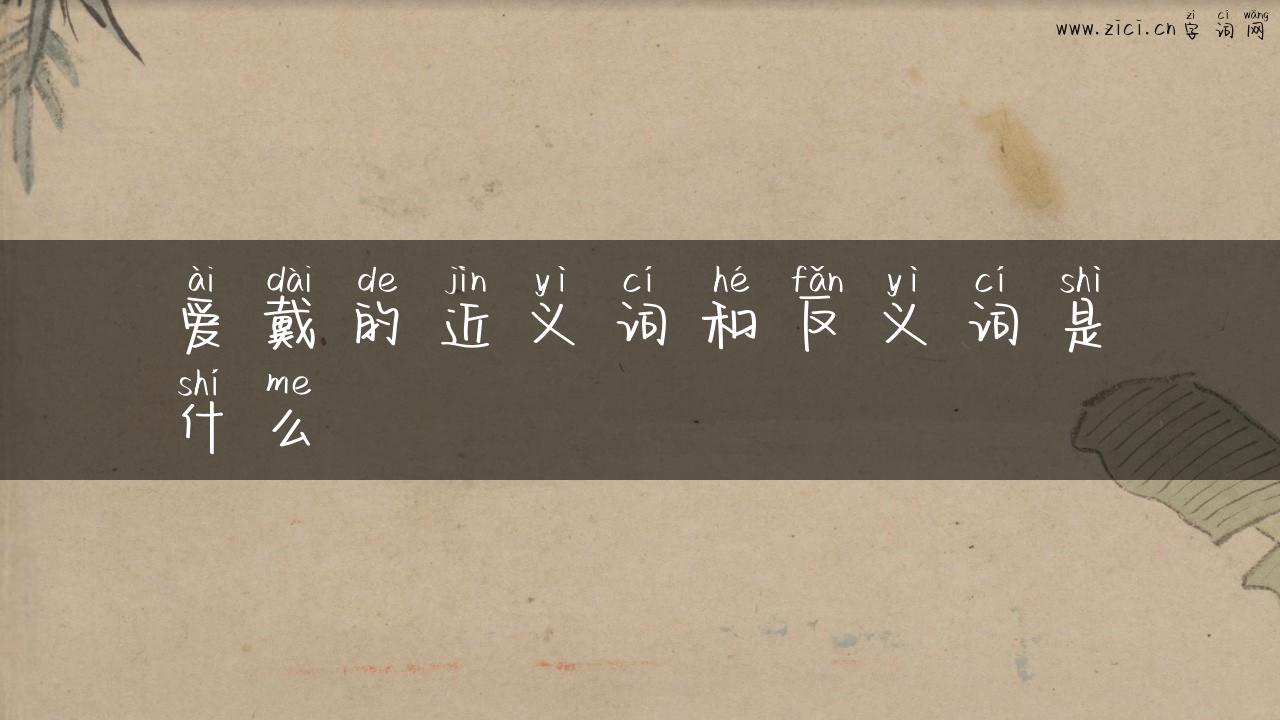 zì cí wǎng
www.zici.cn 字词网
ài dài de jìn yì cí hé fǎn yì cí shì
爱戴的近义词和反义词是
shí me
什么